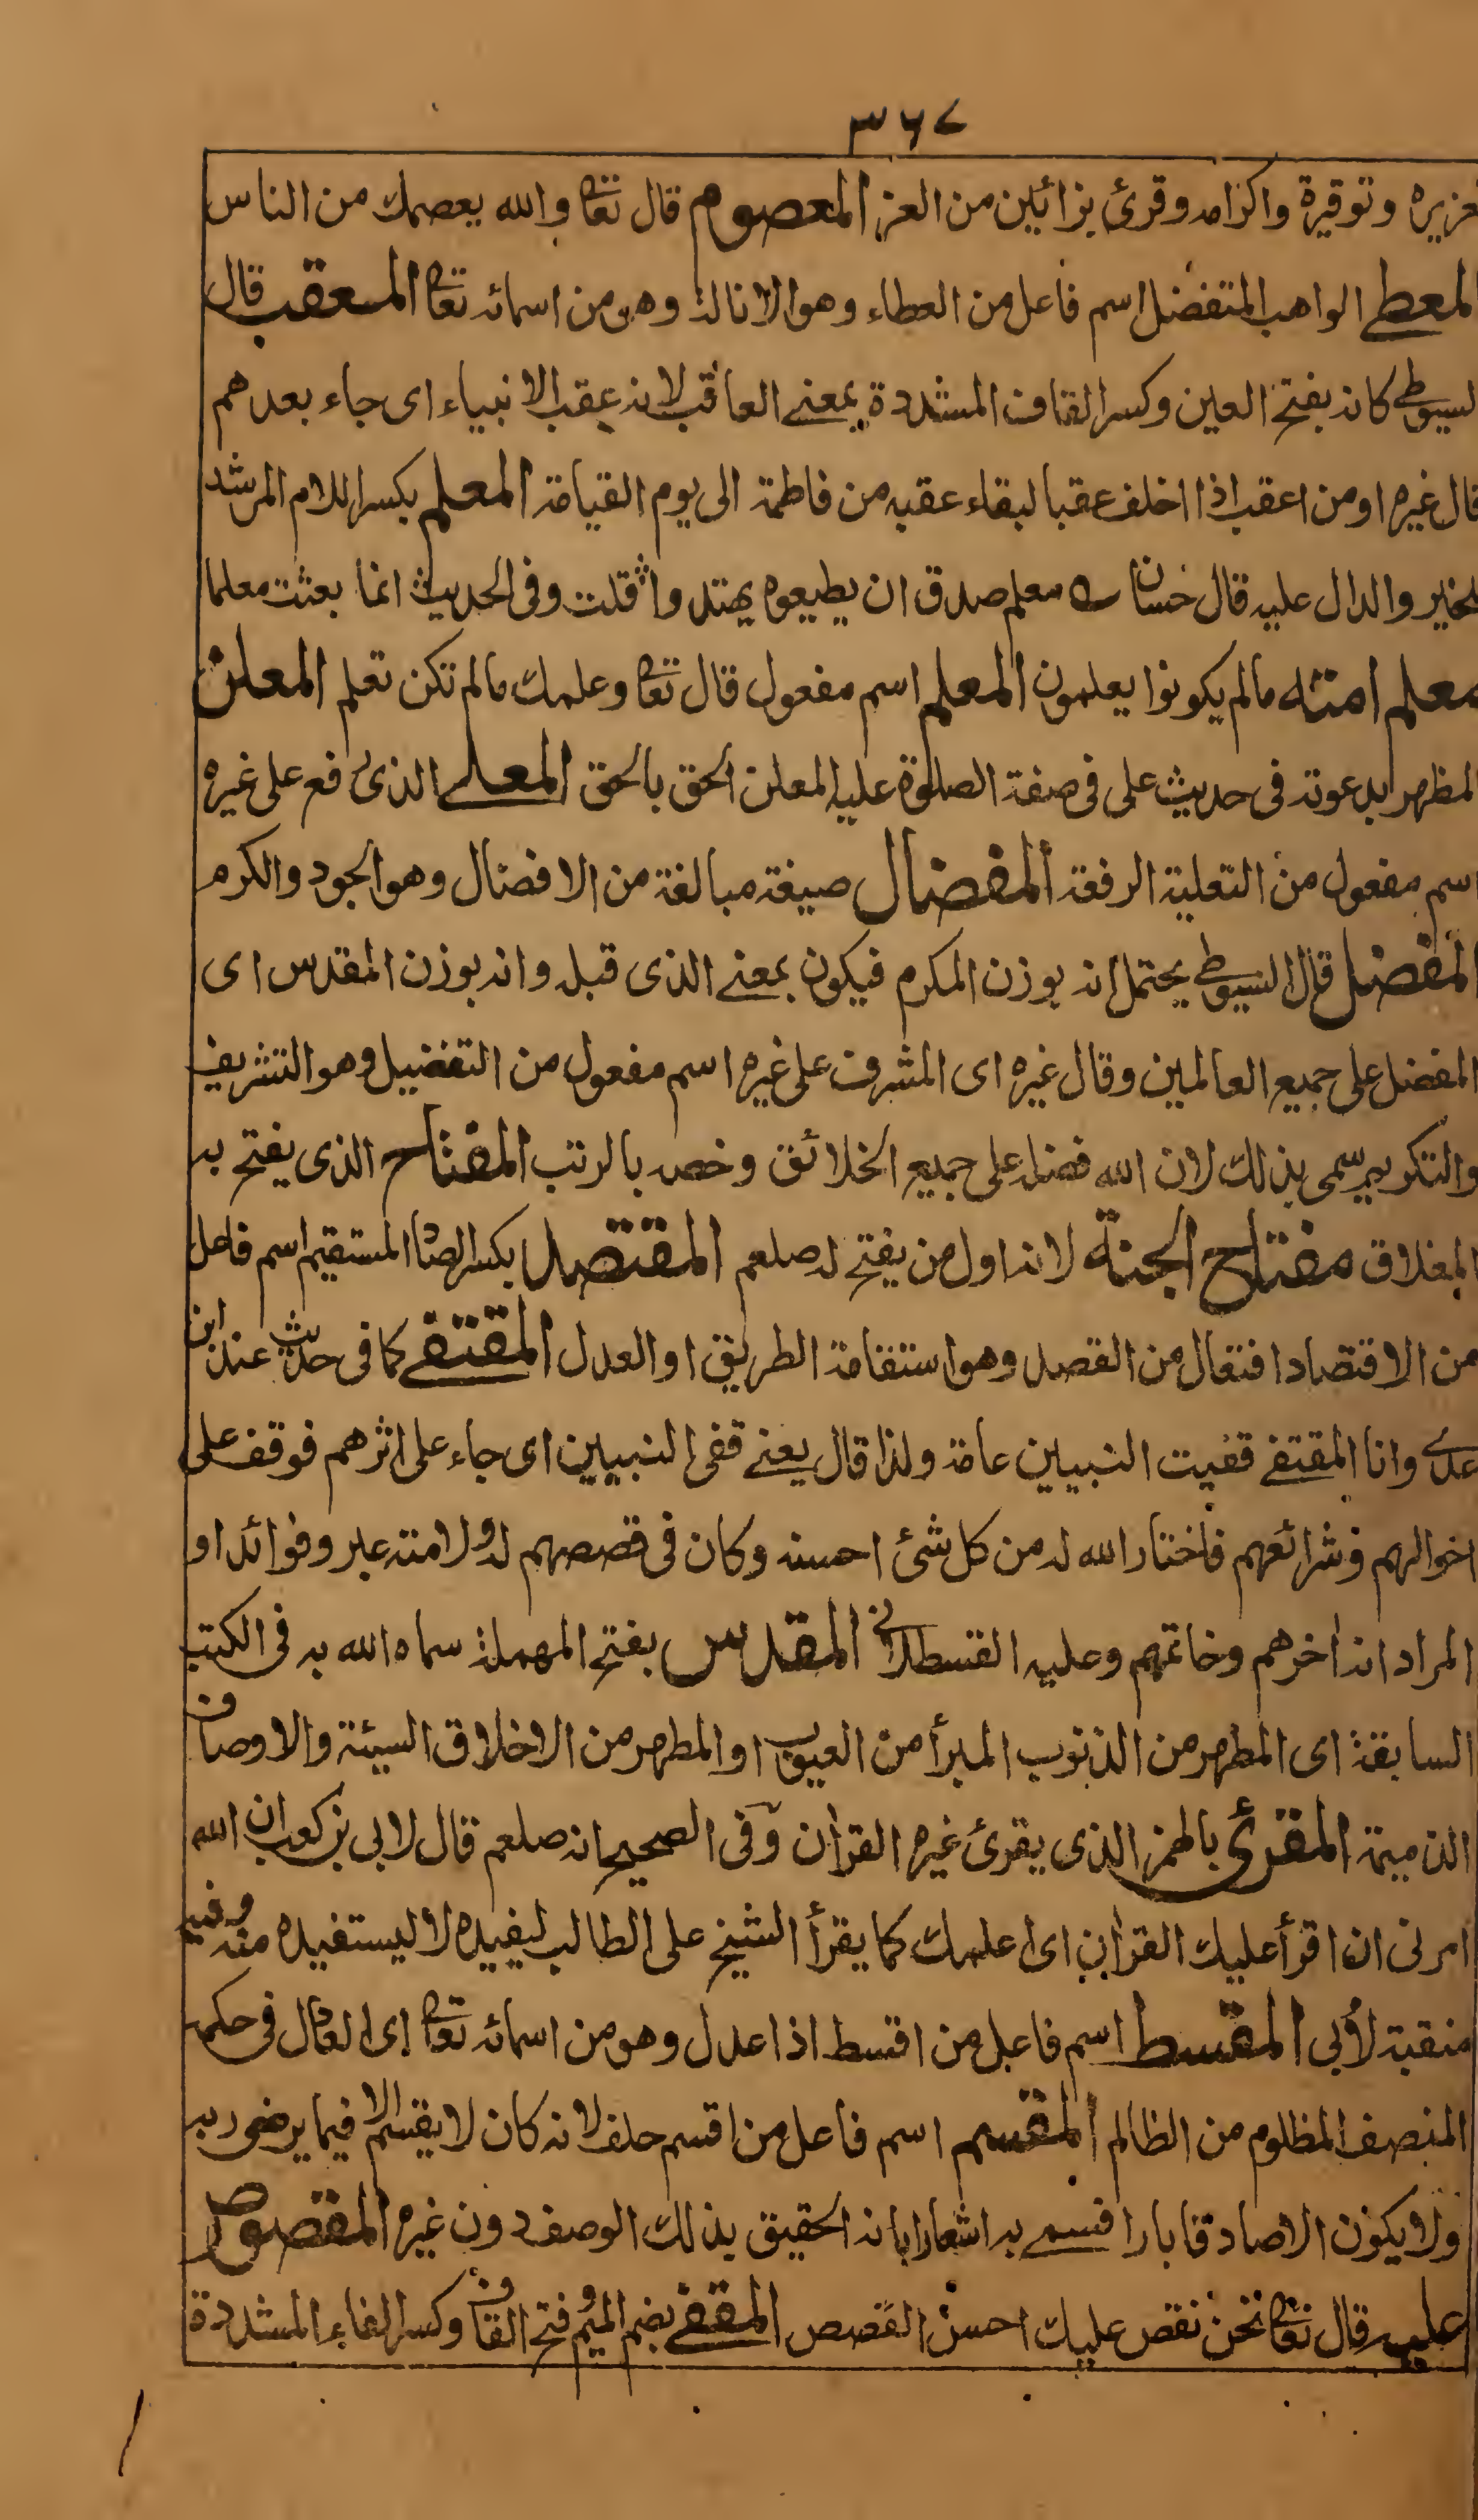 ٣٦٧
تعزيره وتوقيره واكرامه وقرئ بزائين من العز المعصوم قال تعا والله يعصمك من الناس
المعطى الواهب المتفضل اسم فاعل من العطاء وهو الانالة وهو من اسمائه تعا المعقب قال
السيوطى كانه بفتح العين وكسر القاف المشددة بمعنى العاقب لانه عقب الانبياء اى جاء بعدهم
قال غيره او من اعقب اذا اخلف عقبا لبقاء عقبه من فاطمة الى يوم القيامة المعلم بكسر اللام المرشد
للخير والدال عليه قال حسان معلم صدق ان يطيعوه يهتدوا قلت وفى الحديث انما بعثت معلما
معلم امته مالم يكونوا يعلمون المعلم اسم مفعول قال تعا وعلمك مالم تكن تعلم المعلن
المظهر بدعوته فى حديث على فى صفة الصلوة عليه المعلن الحق بالحق المعلى الذى رفع على غيره
اسم مفعول من التعلية الرفعة المفضال صيغة مبالغة من الافضال وهو الجود والكرم
المفضل قال السيوطى يحتمل انه بوزن المكرم فيكون بمعنى الذى قبله وانه بوزن المقدس اى
المفضل على جميع العالمين وقال غيره اى المشرف على غيره اسم مفعول من التفضيل وهو التشريف
والتكريم سمى بذلك لان الله فضله على جميع الخلائق وخصه بالرتب المفتاح الذى يفتح به
المغلاق مفتاح الجنة لانه اول من يفتح له صلعم المقتصد بكسر الصاد المستقيم اسم فاعل
من الاقتصاد افتعال من القصد وهو استقامة الطريق او العدل المقتفى كما فى حديث عند ابن
عدى وانا المقتفى قفيت النبيين عامة ولذا قال يعنى قفى النبيين اى جاء على اثرهم فوقف على
احوالهم وشرائعهم فاختار الله له من كل شئ احسنه وكان فى قصصهم له ولامته عبر وفوائد او
المراد انه اخرهم وخاتمهم وعليه القسطلانى المقدس بفتح المهملة سماه الله به فى الكتب
السابقة اى المطهر من الذنوب المبرأ من العيوب او المطهر من الاخلاق السيئة والاوصاف
الذميمة المقرئ بالهمز الذى يقرئ غيره القرآن وفى الصحيح انه صلعم قال لابى بن كعب ان الله
امرنى ان اقرأ عليك القرآن اى اعلمك كما يقرأ الشيخ على الطالب ليفيده لا ليستفيده منه وفيه
منقبة لأبى المقسط اسم فاعل من اقسط اذا عدل وهو من اسمائه تعا اى العادل فى حكمه
المنصف المظلوم من الظالم المقسم اسم فاعل من اقسم حلف لانه كان لا يقسم الا فيما يرضى ربه
ولا يكون الا صادقا بارا اقسم به اشعارا بانه الحقيق بذلك الوصف دون غيره المقصوص
عليه قال تعا نحن نقص عليك احسن القصص المقفى بضم الميم وفتح القاف وكسر الفاء المشددة